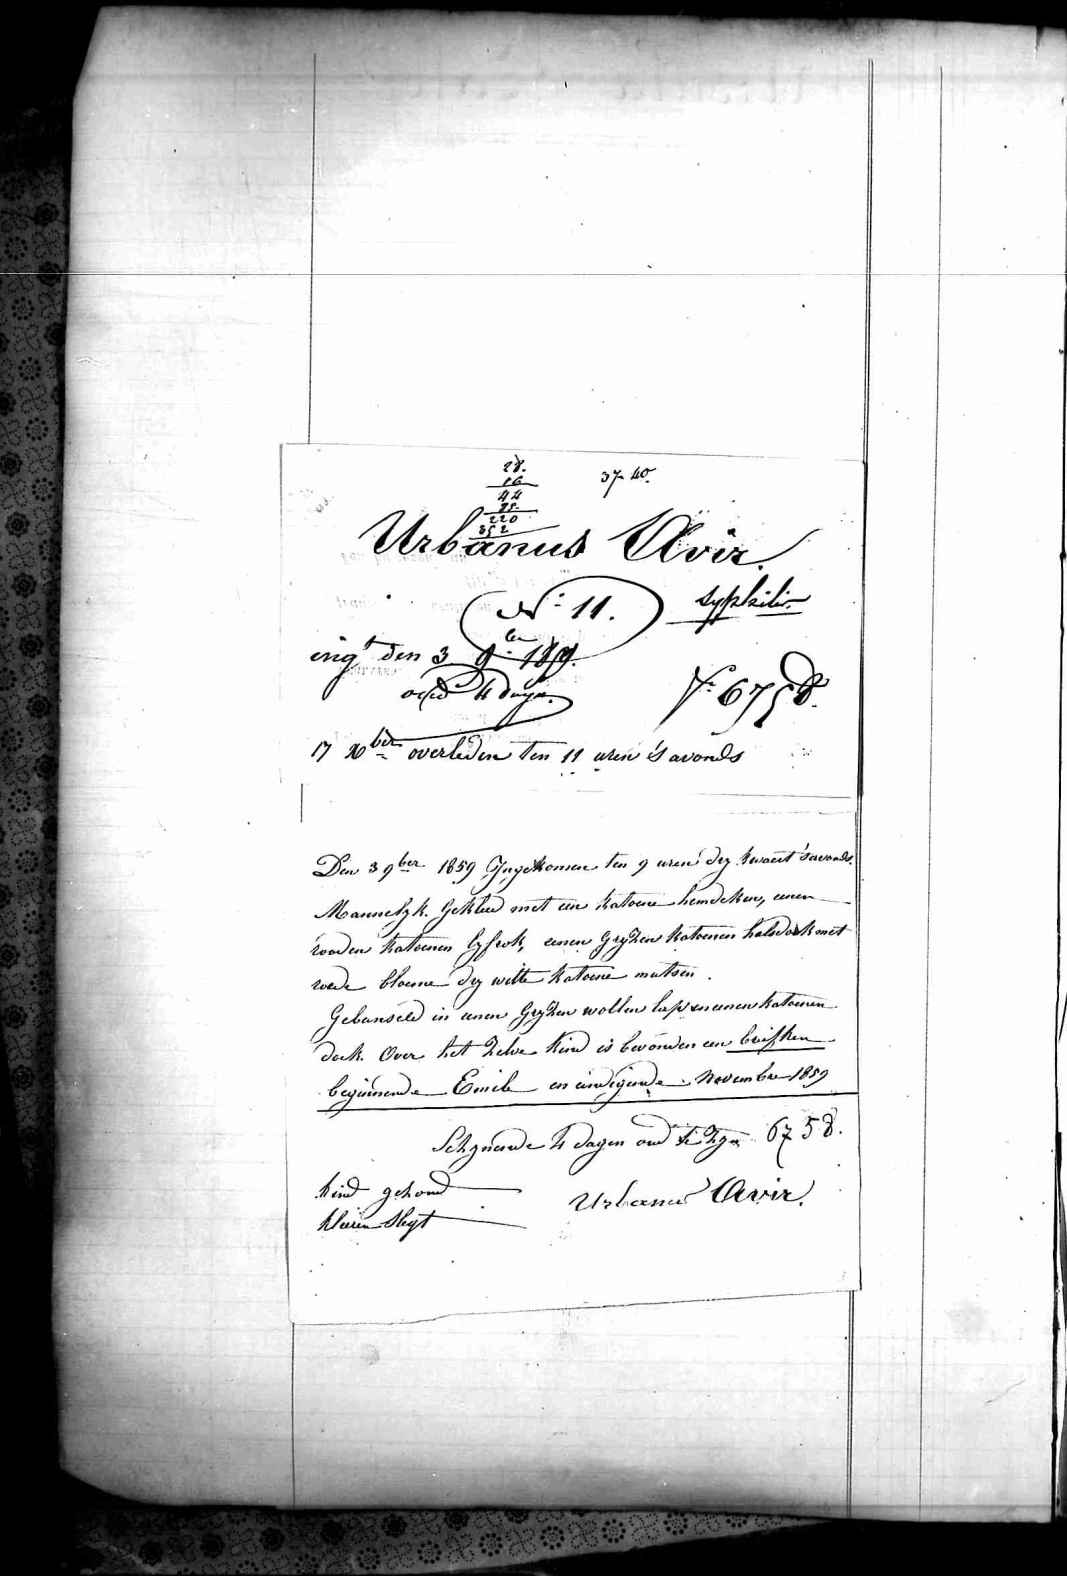 28.
16
44
220
352
37-40.
Urbanus Avir.
N° 11.
syphilis
ing't den 3 9.ber 1859.
oud 4 dagen.
N° 6758.
17 Xber overleden ten 11 uren 's avonds
Den 3 9ber 1859 Ingekomen ten 9 uren dry kwaert 's avonds.
Mannelyk. Gekleed met een katoene hemdeken, eenen
rooden katoenen lyfrok, eenen gryzen katoenen halsdoek met
roode bloeme dry witte katoene mutsen.
Gebunseld in eenen gryzen wollen lap en eenen katoenen
doek. Over het zelve kind is bevonden een briefken
beginnende Emile en eindigende November 1859
Schynende 4 dagen oud te zyn 6758.
kind gezond
Urbanus Avir.
kleeren slegt